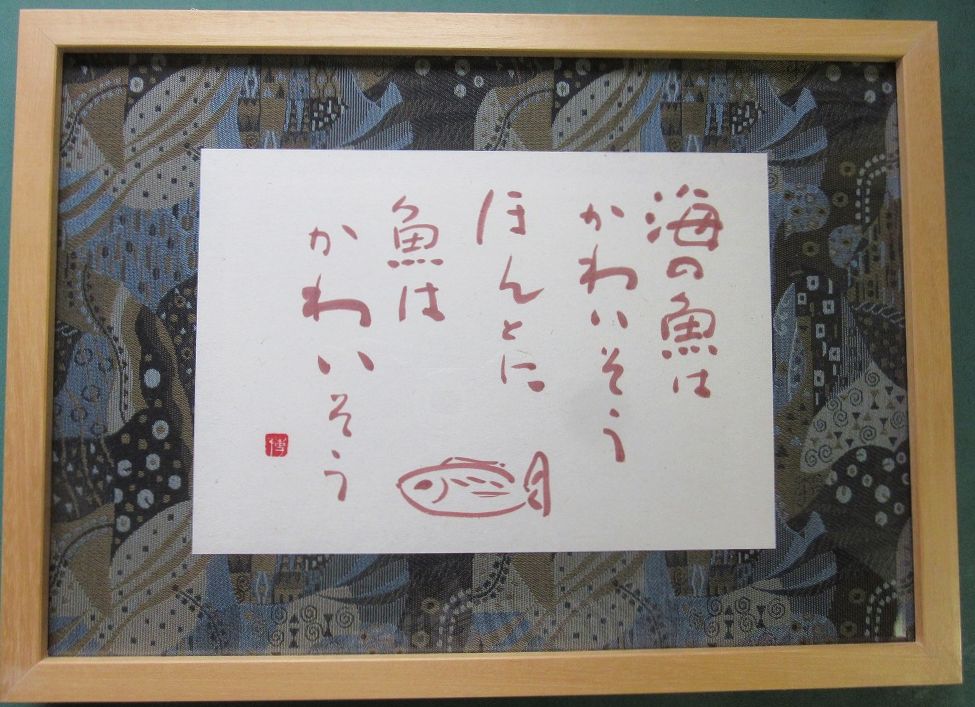 海の魚は
かわいそう
ほんとに
魚は
かわいそう
博